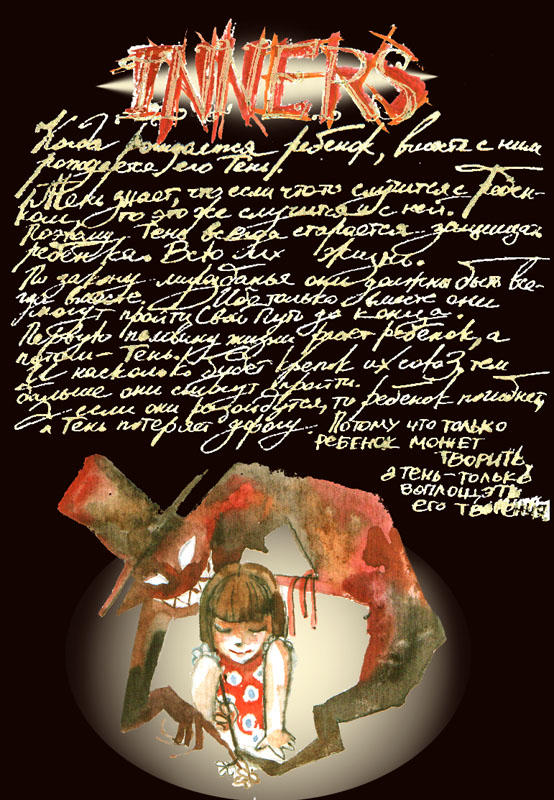 INNERS
Когда рождается ребенок, вместе с ним
рождается его Тень.
Тень знает, что если что-то случится с Ребен-
ком, то это же случится и с ней.
Поэтому Тень всегда старается защищать
ребенка. Всю их жизнь.
По закону мирозданья они должны быть все-
гда вместе. И только вместе они
смогут пройти свой Путь до конца.
Первую половину жизни ребенок, а
потом - Тень.
И насколько будет крепок их союз, тем
дальше они смогут пройти.
А если они разойдутся, то ребенок погибнет,
а Тень потеряет дорогу. Потому что только
РЕБЕНОК МОЖЕТ
ТВОРИТЬ,
а тень-только
воплощать
его творения